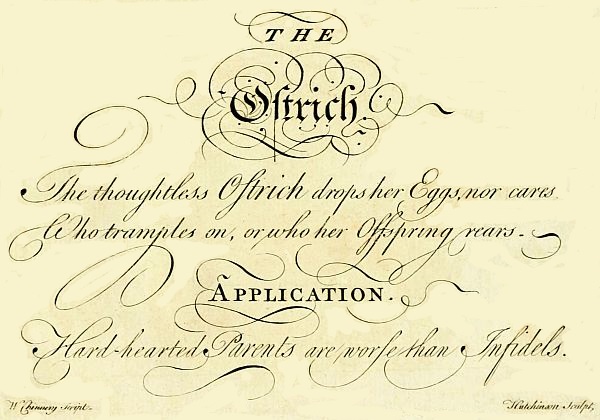 THE
Oſtrich
The thoughtleſs Oſtrich drops her Eggs, nor cares
Who tramples on, or who her Offspring rears.
APPLICATION.
Hard-hearted Parents are worſe than Infidels.
W Chinnery Script. Hutchinson Sculpt,